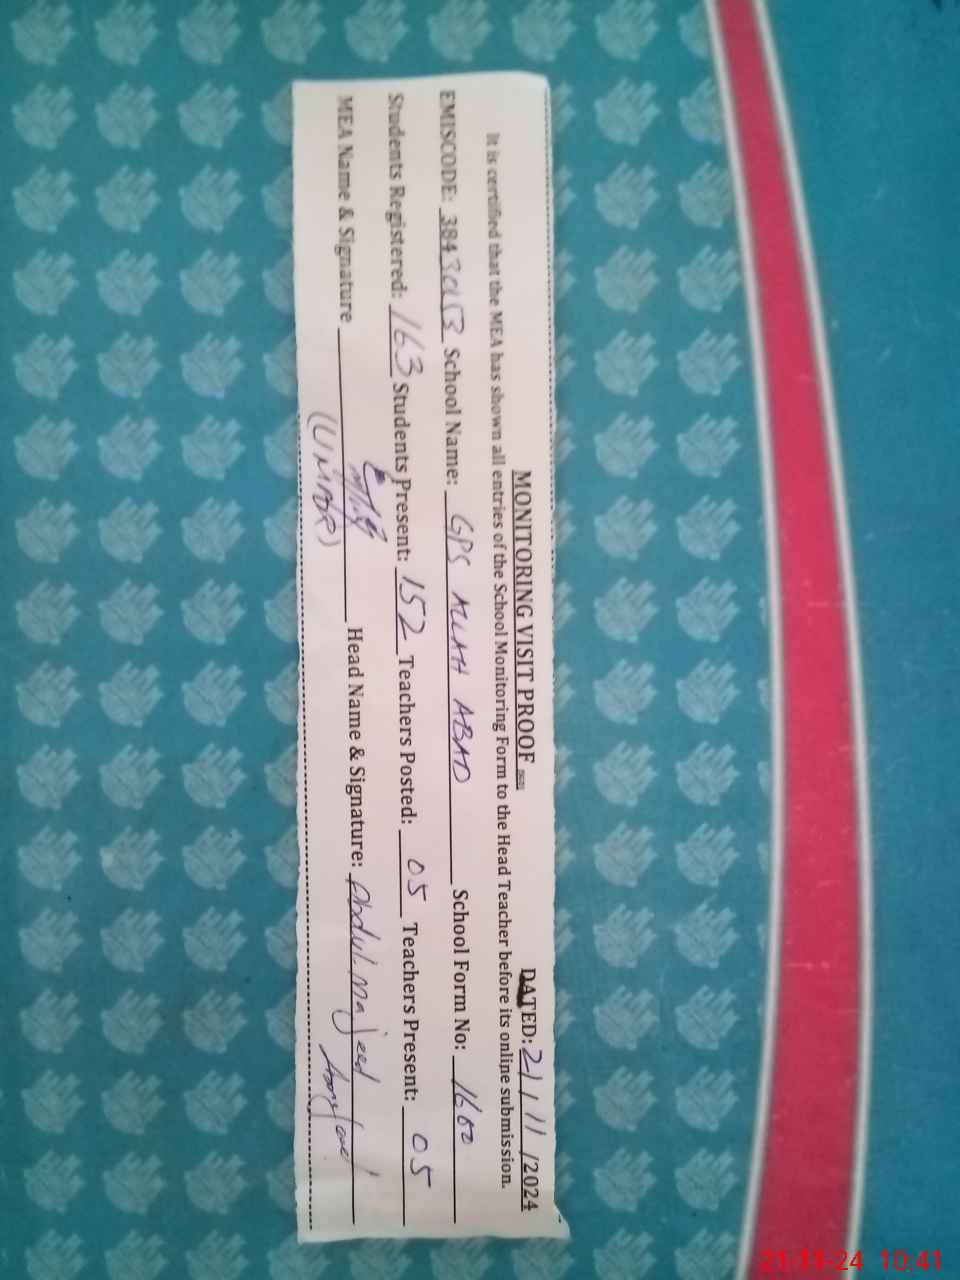 MONITORING VISIT PROOF DATED: 21/11/2024
It is certified that the MEA has shown all entries of the School Monitoring Form to the Head Teacher before its online submission.
EMISCODE: 38430153 School Name: GPS ALLAH ABAD School Form No: 1660
Students Registered: 163 Students Present: 152 Teachers Posted: 05 Teachers Present: 05
MEA Name & Signature Head Name & Signature: Abdul Majeed
(UMAR)
21-11-24 10:41